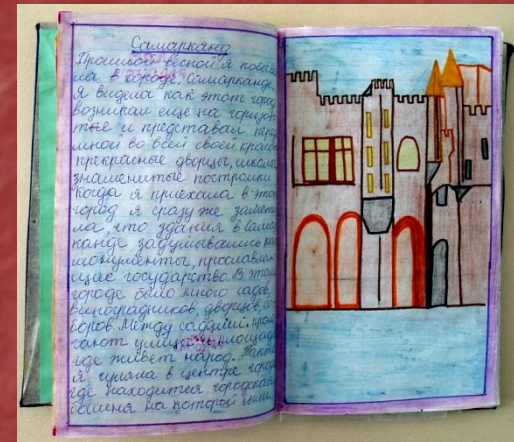 Самарканд
Прошлой весной я побыва
ла в городе Самарканде,
я видела как этот город
возникал еще на горизон
тье и представал перед
мной во всей своей красе
прекрасные дворцы, школы
знаменитые постройки
когда я приехала в этот
город я сразу же замети
ла, что здания в Самар
канде задумывались как
монументы, прославляю
щие государство. В этом
городе было много садов,
виноградников, дворцов, со
боров. Между садами про
легают улицы, площади
где живет народ. Также
я гуляла в центре города
где находится городская
башня на которой